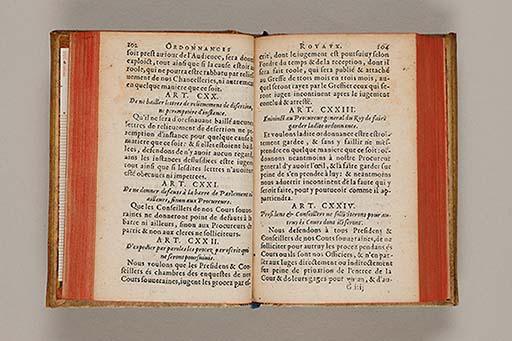 102 ORDONNANCES
soit prest au iour de l'Audience, sera donné
exploict, tout ainsi que si la cause estoit au
roole, qui ne pourra estre rabbatu par relief-
uement de nos Chancelleries, ni autrement
en quelque maniere que ce soit.
ART. CXX.
De ne bailler lettres de relieuement de desertion,
ne peremptoire d'instance.
Qu'il ne sera d'oresnauant baillé aucunes
lettres de relieuement de desertion ne pe-
remption d'instance pour quelque cause &
matiere que ce soit: & si elles estoient bail-
lees, defendons de n'y auoir aucun regard,
ains les instances desusdictes estre iugees
tout ainsi que si lesdites lettres n'auoient
esté obtenues ni impetrees.
ART. CXXI.
De ne donner defauts à la barre de Parlement ni
ailleurs, sinon aux Procureurs.
Que les Conseillers de nos Cours souue-
raines ne donneront point de defauts à la
barre ni ailleurs, sinon aux Procureurs des
partie & non aux clercs ne solliciteurs.
ART. CXXII.
D'expedier par paroles les procez par escrit qui
ne seront poursuiuis.
Nous voulons que les President & Con-
seillers és chambres des enquestes de nos
Cours souueraines, iugent les procez par es-
ROYAVX. 104
crit, dont le iugement est poursuiuy selon
l'ordre du temps & de la reception, dont il
sera fait roole, qui sera publié & attaché
au Greffe de trois mois en trois mois, au-
quel seront rayez par le Greffier ceux qui se-
ront iugez incontinent apres le iugement
conclud & arresté.
ART. CXXIII.
Enioinct au Procureur general du Roy de faire
garder ladite ordonnance.
Et voulons ladite ordonnance estre estroi-
tement gardee, & sans y faillir ne mes-
prendre en quelque maniere que ce soit: or-
donnons neantmoins à nostre Procureur
general d'y auoir l'œil, & la faire garder sur
peine de s'en prendre à luy: & neantmoins
nous aduertir incontinent de la faute qui y
seroit faite, pour y pouruoir comme il ap-
partiendra.
ART. CXXIV.
Presidens & Conseillers ne solliciterons pour au-
truy és Cours dont ils seront.
Nous defendons à tous President &
Conseillers de nos Cours souueraines, de ne
solliciter pour autruy les procez pendans és
Cours où ils sont nos Officiers, & n'en par-
ler aux Iuges directement ou indirectement
sur peine de priuation de l'entree de la
Cour & de leurs gages pour vn an, & d'au-
G iiij